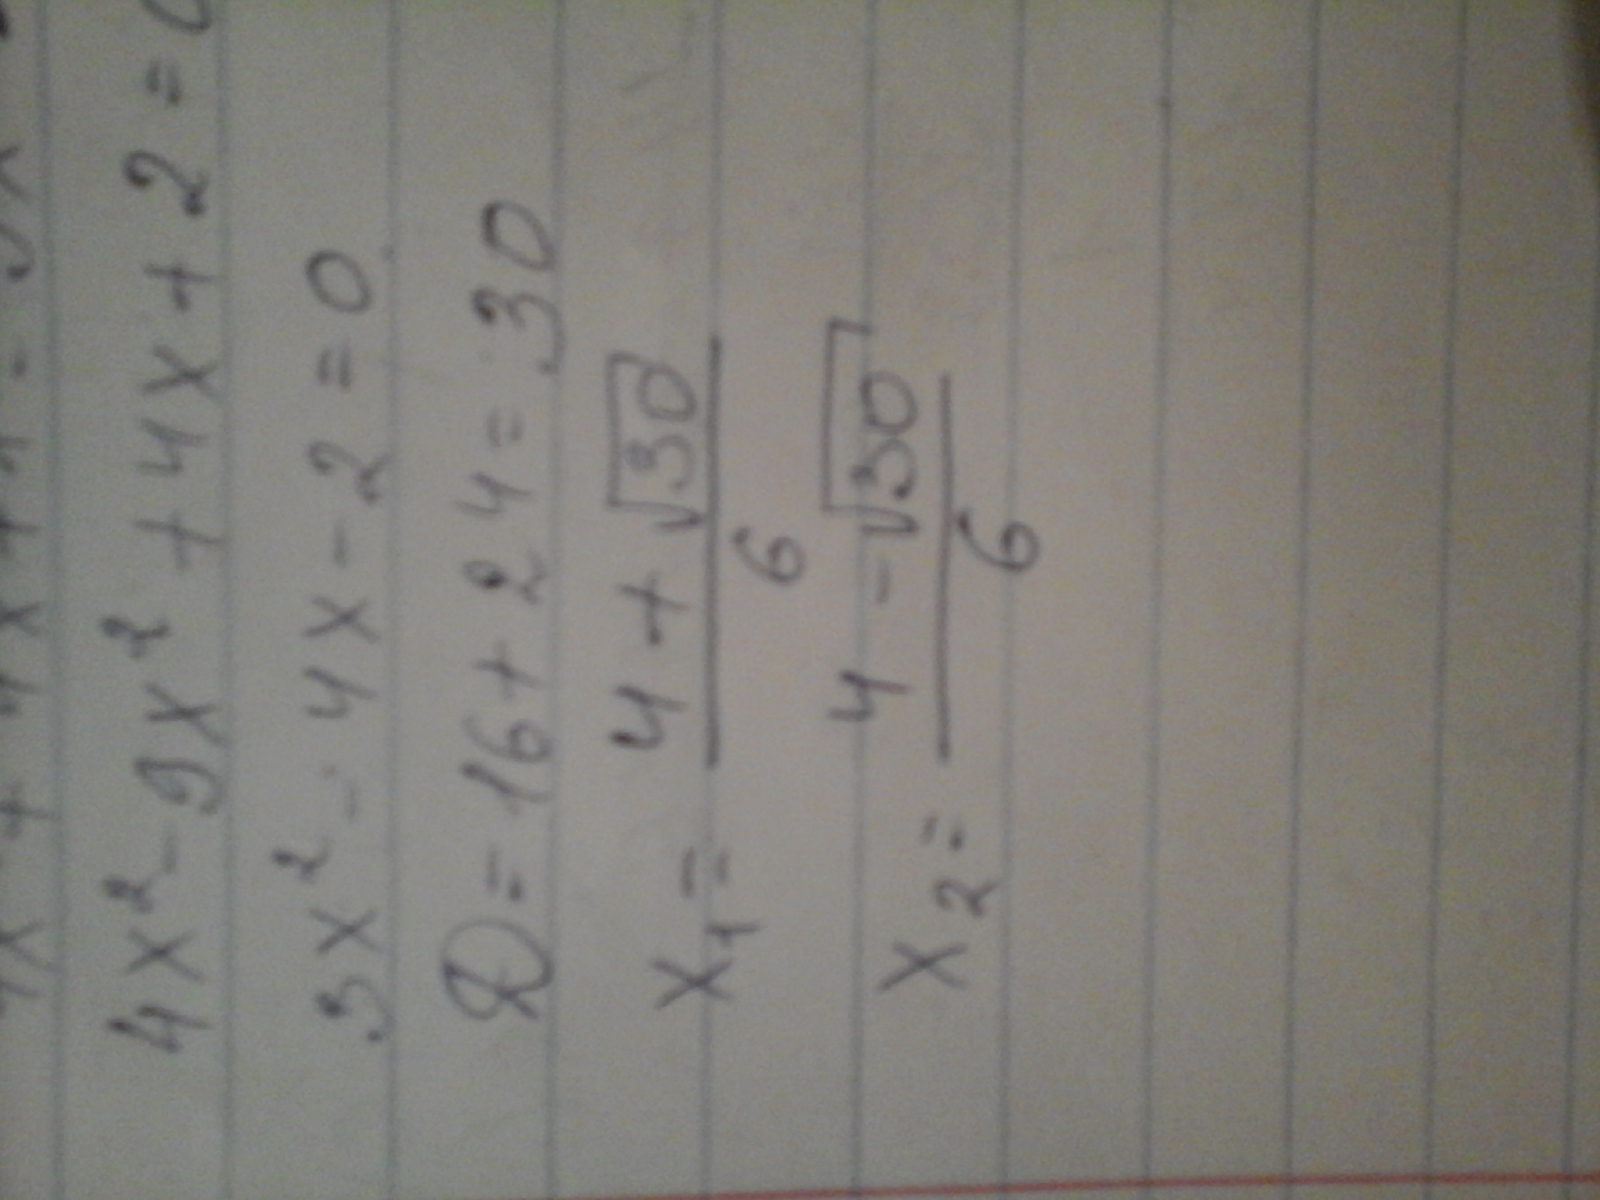 4x² - 9x² + 4x + 2 = 0
3x² - 4x - 2 = 0
D = 16 + 24 = 30
x₁ = (4 + √30) / 6
x₂ = (4 - √30) / 6